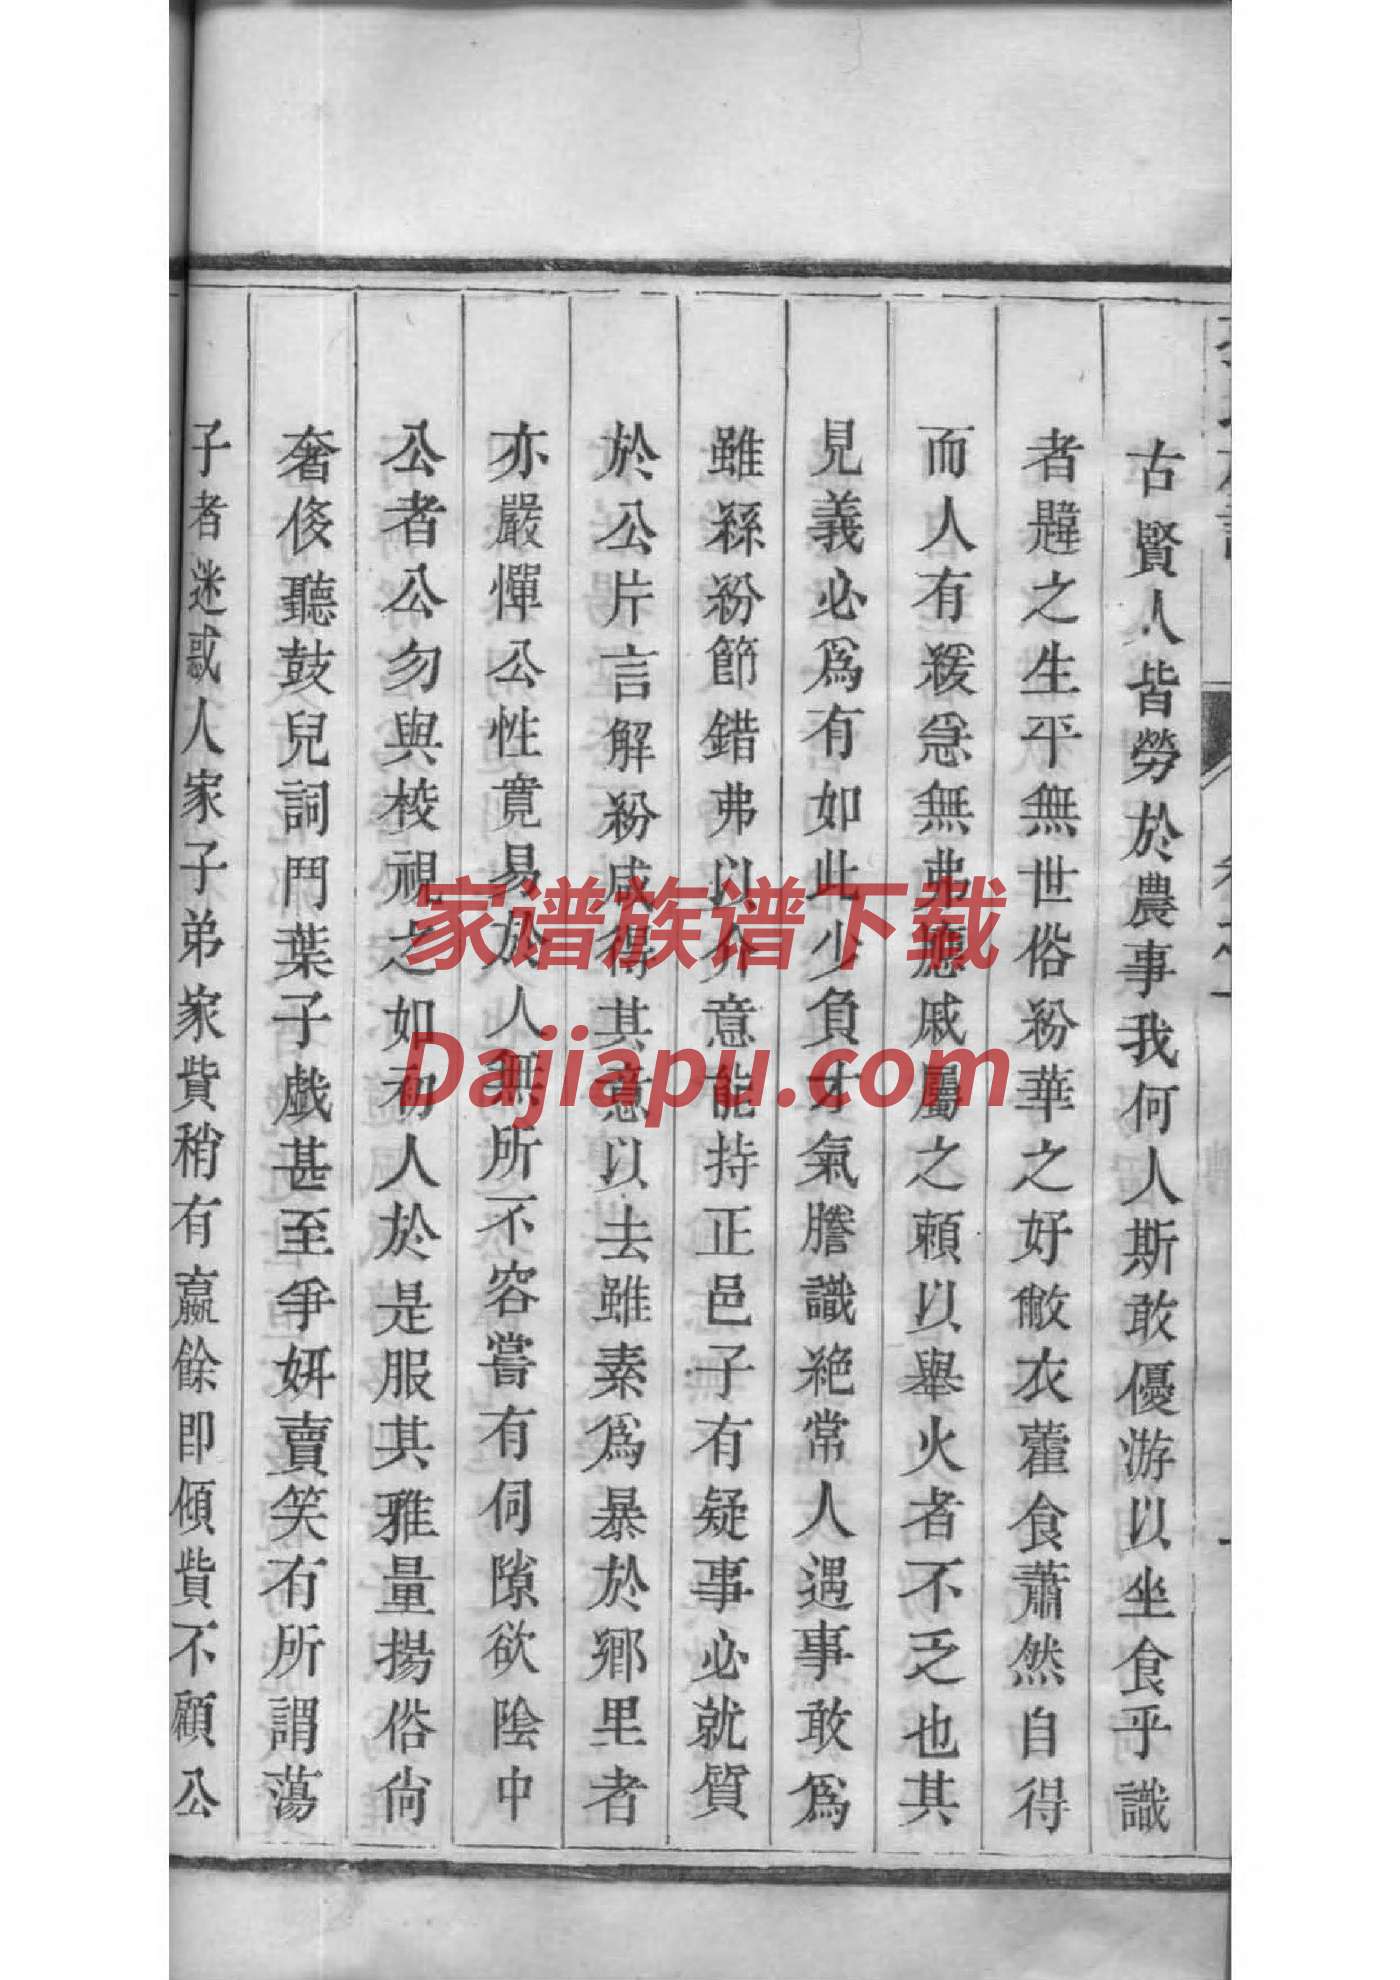 古賢人皆勞於農事我何人斯敢優游以坐食乎識
者韙之生平無世俗紛華之好敝衣藿食蕭然自得
而人有緩急無弗應戚屬之賴以舉火者不乏也其
見義必爲有如此少負才氣膽識絕常人遇事敢爲
雖絲紛節錯弗以介意能持正邑子有疑事必就質
於公片言解紛咸得其意以去雖素爲暴於鄉里者
亦嚴憚公性寬易於人無所不容嘗有伺隙欲陰中
公者公勿與校視之如初人於是服其雅量揚俗尙
奢侈聽鼓兒詞鬥葉子戲甚至爭妍賣笑有所謂蕩
子者迷惑人家子弟家貲稍有贏餘即傾貲不顧公
家谱族谱下载
Dajiapu.com